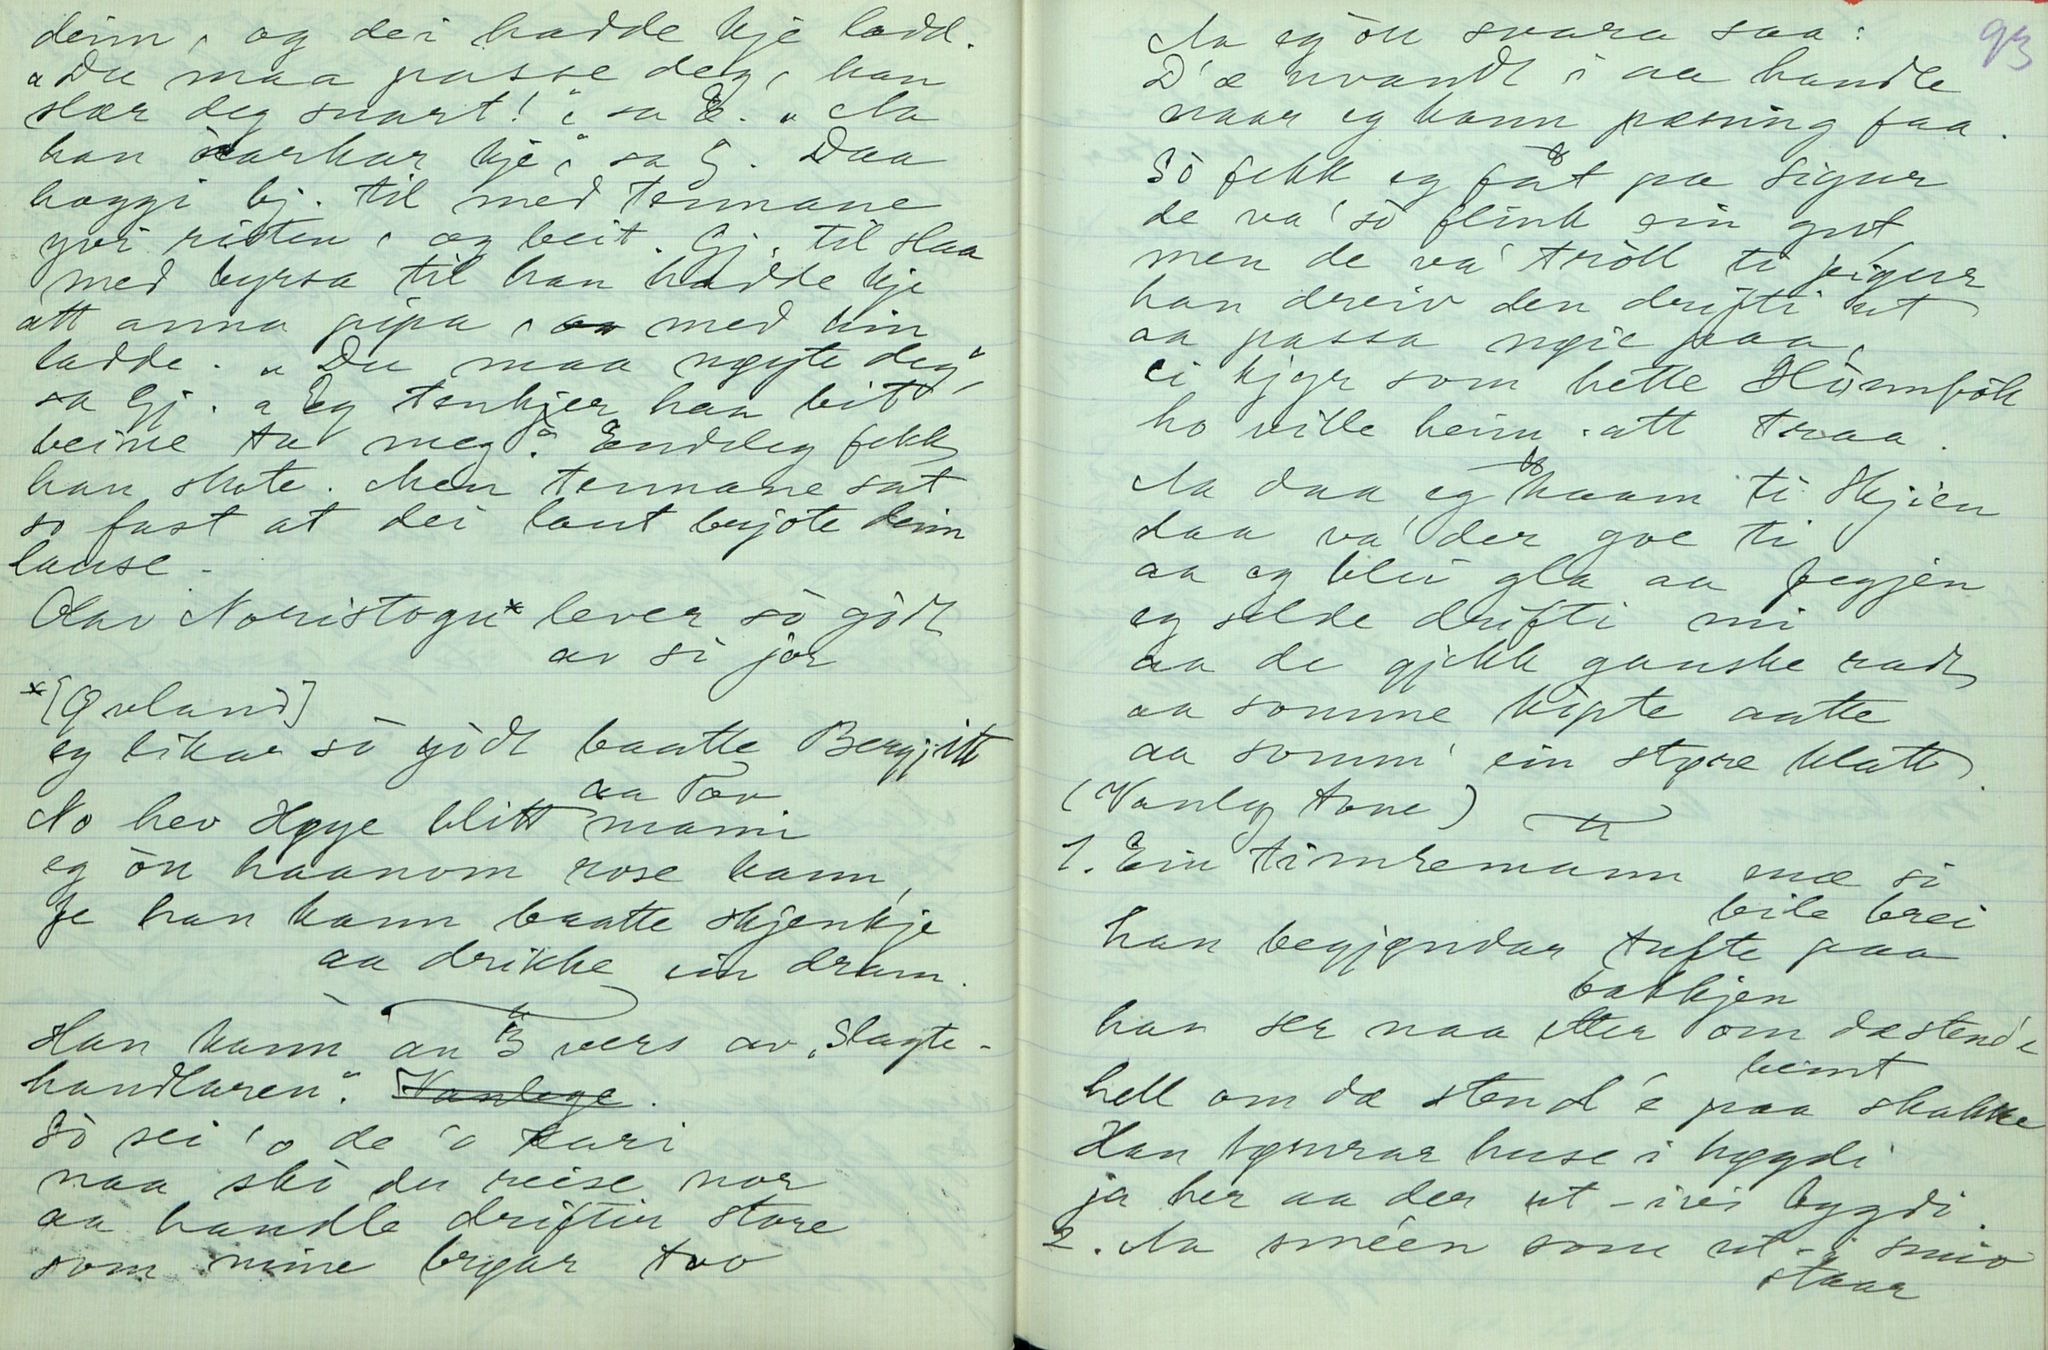 deim, og dei hadde kje ladd.
"Du maa passe deg, han
slær deg snart!" sa E. "Aa
han orkar kje", sa G. Daa
hoggi bj. til med tennane
yvi risten, og beit. Gj. til slaa
med byrsa til han hadde kje
att anna pipa, med hin
ladde. "Du maa nøyte deg"
sa Gj. "Eg tenkjer han bit
beine tu meg". Endeleg fekk
han skote. Men tennane sat
so fast at dei laut brjote deim
lause -
Olav Noristogu* lever sò gòdt
av si jor
*[Qvland]
eg likar sò gòdt baatte Bergjitt
aa Tov
No hev Høye blitt mann
eg òn haanom rose kann,
Je han kann baatte skjenkje
aa drikke ein dram.
Han kann an 3 vers av "Slagte-
handlaren". Vanlege.
Sò sei 'o de 'o Kari
naa skò du reise nor
aa handle driftir store
som mine brøar tvo
93
Aa eg òn svara saa:
D'æ uvandt i aa handle
naar eg kann pæning faa.
Sò fekk eg fat pa Sigur
de va' sò flink ein gut,
men de va' tròll ti Sigur
han dreiv den drifti ut
aa passa ngie paa,
ei kjyr som hette
ho ville heim-att traa.
Aa daa eg kaam ti Skjien
daa va' der goe ti
aa eg blei gla aa fegjen
eg selde drifti mi
aa de gjekk ganske radt
aa somme kipte aatte
aa somm' ein støre klatt.
(Vanleg tone)
1. Ein timremann mæ si
bile brei
han begjøndar tufte paa
bakkjen
han ser naa etter om dæ stend'e
beint
hell om dæ stend'e paa skakke
Han tømrar huse i høgdi
ja her aa der ut-ivi bygdi.
2. Aa sméen som ut-i smio
staar